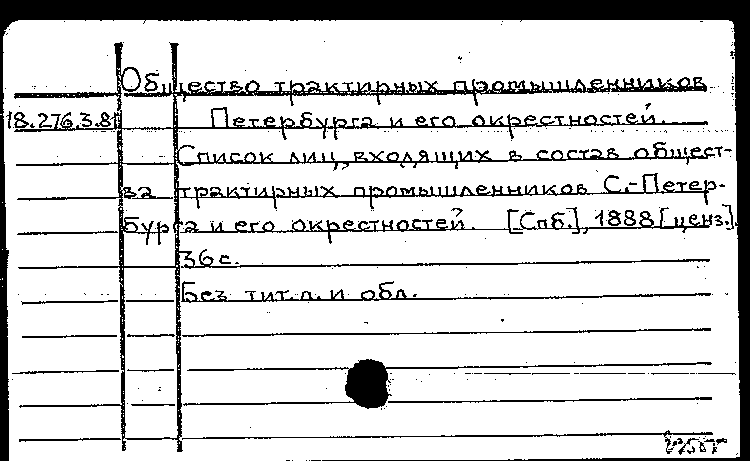 Общество трактирных промышленников
18.276.3.81 Петербурга и его окрестностей.
Список лиц, входящих в состав общест-
ва трактирных промышленников С.-Петер-
бурга и его окрестностей. [Спб.], 1888 [ценз.].
36 с.
Без тит. л. и обл.